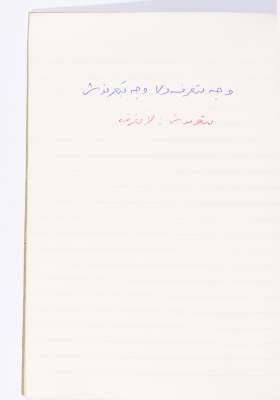 وجه بتعرفه ولا وجه بتعرفوش
بتعرفوش : لا تعرفه